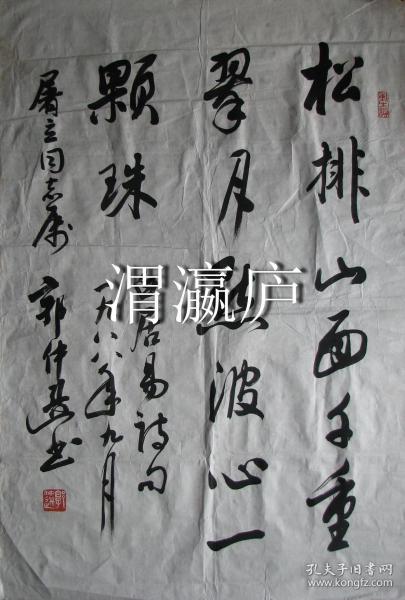 松排山面千重
翠月点波心一
颗珠
居易诗句
一九八八年九月
屠立同志属
郭仲选书
渭瀛庐
孔夫子旧书网
www.kongfz.com